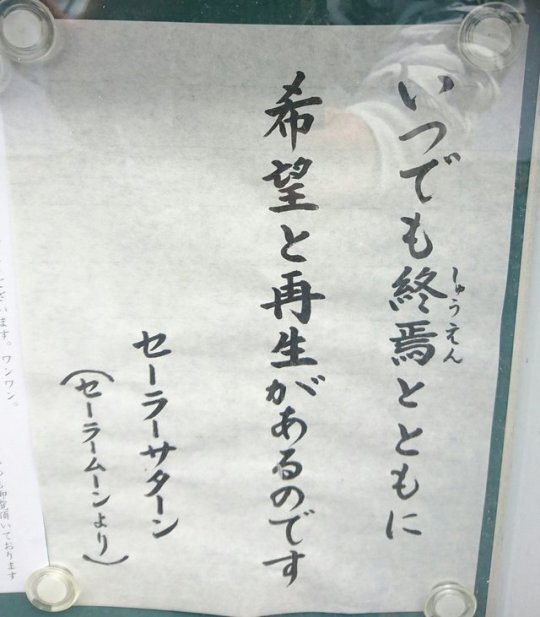 いつでも終焉とともに
しゅうえん
希望と再生があるのです
セーラーサターン
(セーラームーンより)
ざいます。ワンワン。
頂いております